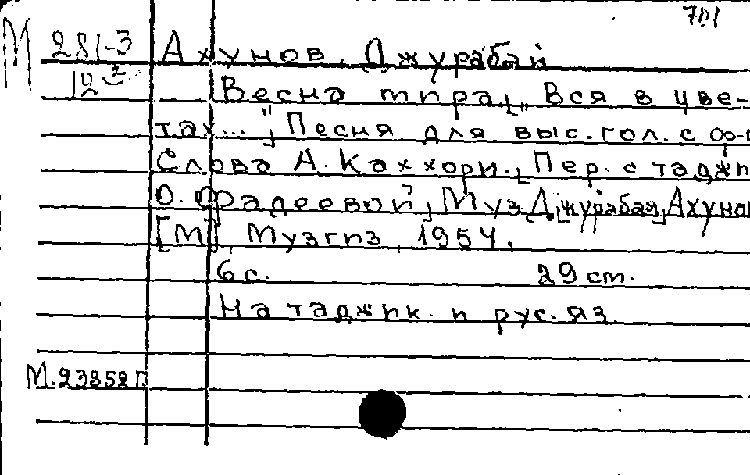 701
М 281-3 Ахунов, Джурабай
12
Весна мира. "Вся в цве-
тах...", Песня для выс. гол. с ф-п
Слова А. Каххори., Пер. с таджик
О. Фадеевой, Муз. Джурабая Ахунов
[М], Музгиз, 1954.
6 с. 29 см.
На таджик. и рус. яз.
М.23858п